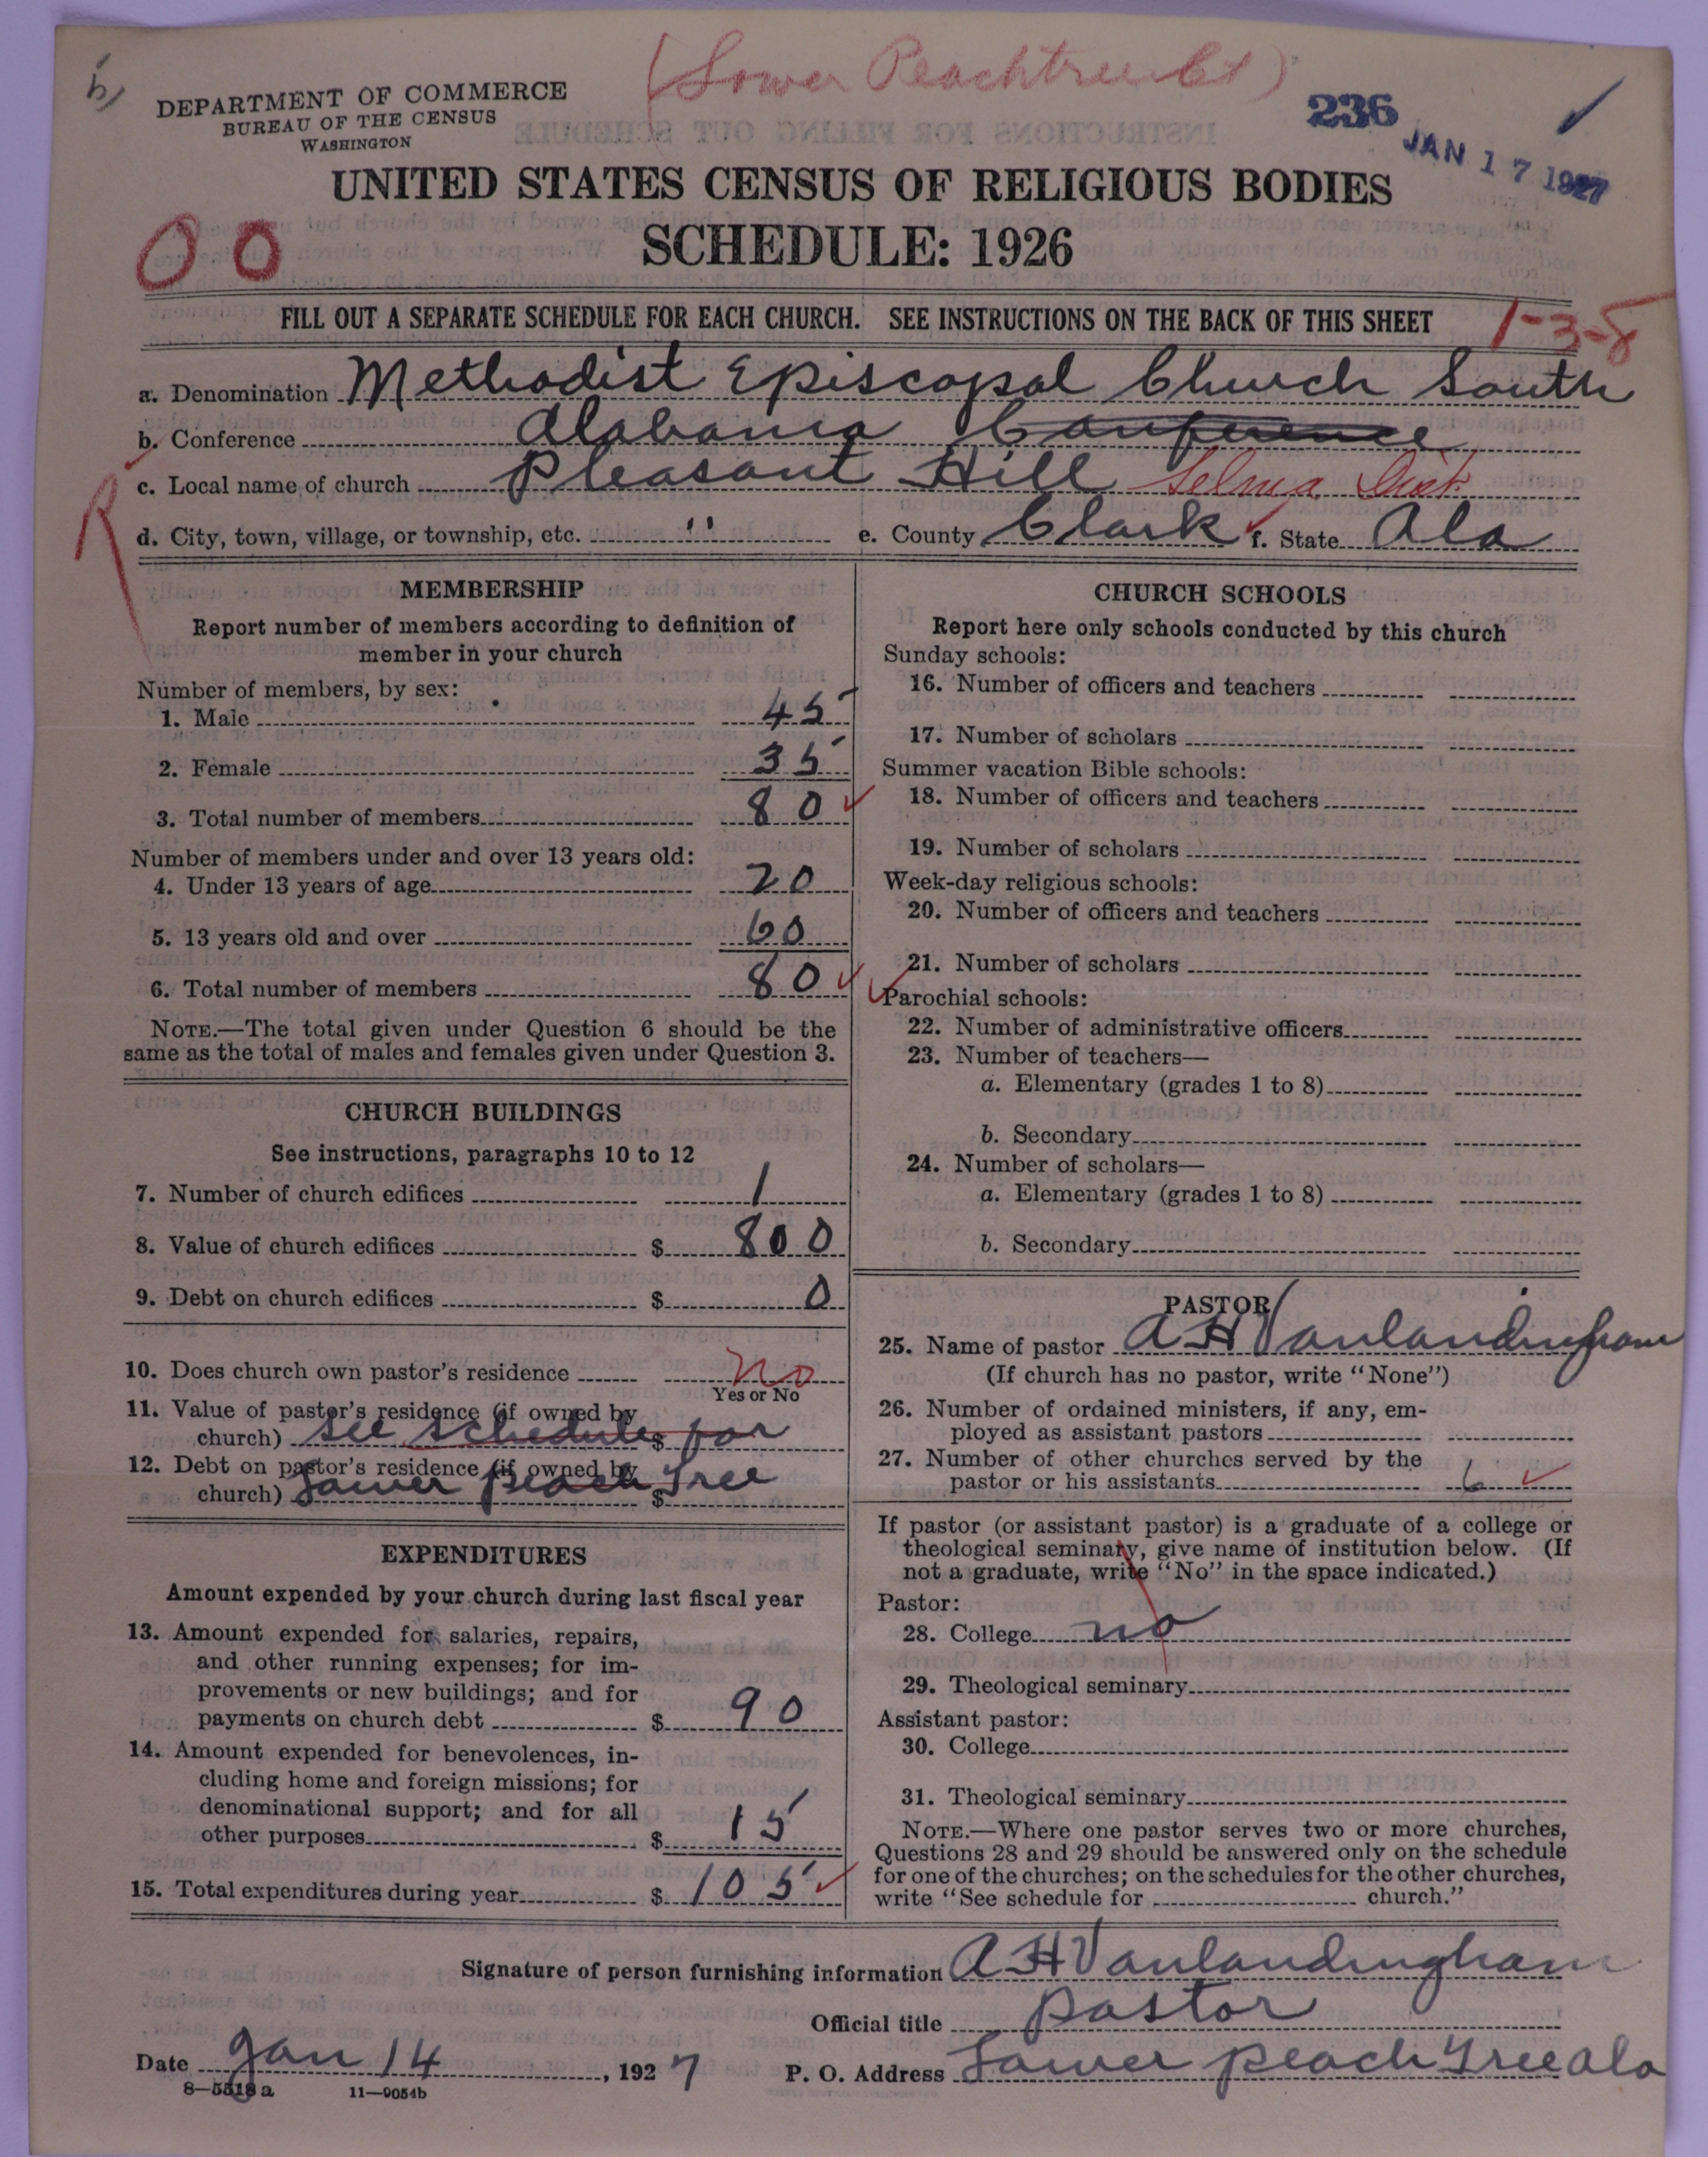 (Lower Peachtree Ct)
DEPARTMENT OF COMMERCE
BUREAU OF THE CENSUS
WASHINGTON
236
JAN 17 1927
UNITED STATES CENSUS OF RELIGIOUS BODIES
SCHEDULE: 1926
00
FILL OUT A SEPARATE SCHEDULE FOR EACH CHURCH. SEE INSTRUCTIONS ON THE BACK OF THIS SHEET
1-3-8
a. Denomination Methodist Episcopal Church South
b. Conference Alabama Conference
c. Local name of church Pleasant Hill Selma Dist.
R
d. City, town, village, or township, etc. " e. County Clark f. State Ala
MEMBERSHIP
Report number of members according to definition of
member in your church
Number of members, by sex:
1. Male 45
2. Female 35
3. Total number of members 80
Number of members under and over 13 years old:
4. Under 13 years of age 20
5. 13 years old and over 60
6. Total number of members 80
NOTE.—The total given under Question 6 should be the
same as the total of males and females given under Question 3.
CHURCH BUILDINGS
See instructions, paragraphs 10 to 12
7. Number of church edifices 1
8. Value of church edifices $ 800
9. Debt on church edifices $ 0
10. Does church own pastor's residence No
Yes or No
11. Value of pastor's residence (if owned by
church) See schedule $ for
12. Debt on pastor's residence (if owned by
church) Lower Peach $ Tree
EXPENDITURES
Amount expended by your church during last fiscal year
13. Amount expended for salaries, repairs,
and other running expenses; for im-
provements or new buildings; and for
payments on church debt $ 90
14. Amount expended for benevolences, in-
cluding home and foreign missions; for
denominational support; and for all
other purposes $ 15
15. Total expenditures during year $ 105
CHURCH SCHOOLS
Report here only schools conducted by this church
Sunday schools:
16. Number of officers and teachers
17. Number of scholars
Summer vacation Bible schools:
18. Number of officers and teachers
19. Number of scholars
Week-day religious schools:
20. Number of officers and teachers
21. Number of scholars
Parochial schools:
22. Number of administrative officers
23. Number of teachers—
a. Elementary (grades 1 to 8)
b. Secondary
24. Number of scholars—
a. Elementary (grades 1 to 8)
b. Secondary
PASTOR
25. Name of pastor A H Vanlandingham
(If church has no pastor, write "None")
26. Number of ordained ministers, if any, em-
ployed as assistant pastors
27. Number of other churches served by the
pastor or his assistants 6
If pastor (or assistant pastor) is a graduate of a college or
theological seminary, give name of institution below. (If
not a graduate, write "No" in the space indicated.)
Pastor:
28. College no
29. Theological seminary
Assistant pastor:
30. College
31. Theological seminary
NOTE.—Where one pastor serves two or more churches,
Questions 28 and 29 should be answered only on the schedule
for one of the churches; on the schedules for the other churches,
write "See schedule for church."
Signature of person furnishing information A H Vanlandingham
Official title Pastor
Date Jan 14, 1927 P. O. Address Lower Peach Tree Ala
8—5518 a 11—9054b